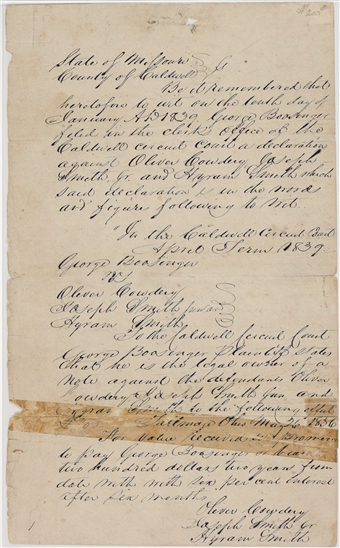 State of Missouri
County of Caldwell Ss
Be it remembered that
heretofore to wit on the tenth day of
January AD 1839 George Boosinger
filed in the clerks office of the
Caldwell circuit court a declaration
against Oliver Cowdery Joseph
Smith Jr and Hyram Smith which
said declaration is in the words
and figures following to wit
"In the Caldwell Circuit Court
April Term 1839
George Boosinger
vs
Oliver Cowdery
Joseph Smith Junior
Hyram Smith
To the Caldwell Circuit Court
George Boosinger Plaintiff states
that he is the legal owner of a
Note against the defendants Oliver
Cowdery Joseph Smith Jun and
Hyram Smith to the following effect
Ohio May 1836
For Value Received
to pay George Boosinger or bearer
two hundred dollars two years from
date with with six per cent interest
after six months
Oliver Cowdery
Joseph Smith Jr
Hyram Smith